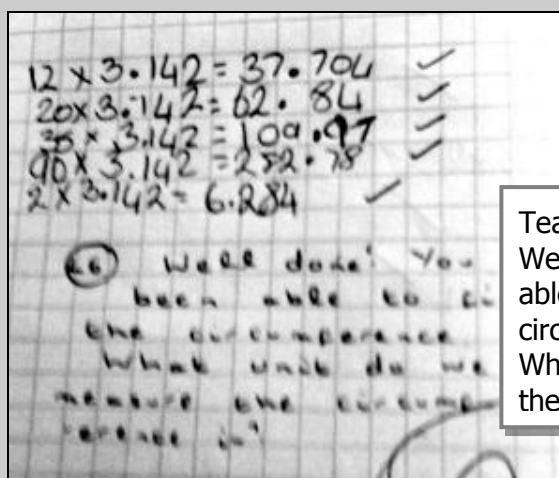 12 x 3.142 = 37.704 ✓
20 x 3.142 = 62.84 ✓
35 x 3.142 = 109.97 ✓
90 x 3.142 = 282.78 ✓
2 x 3.142 = 6.284 ✓
Well done! You
been able to
the circumference
What unit do we
measure the circum
erence in?
Tea
We
able
circ
Wh
the